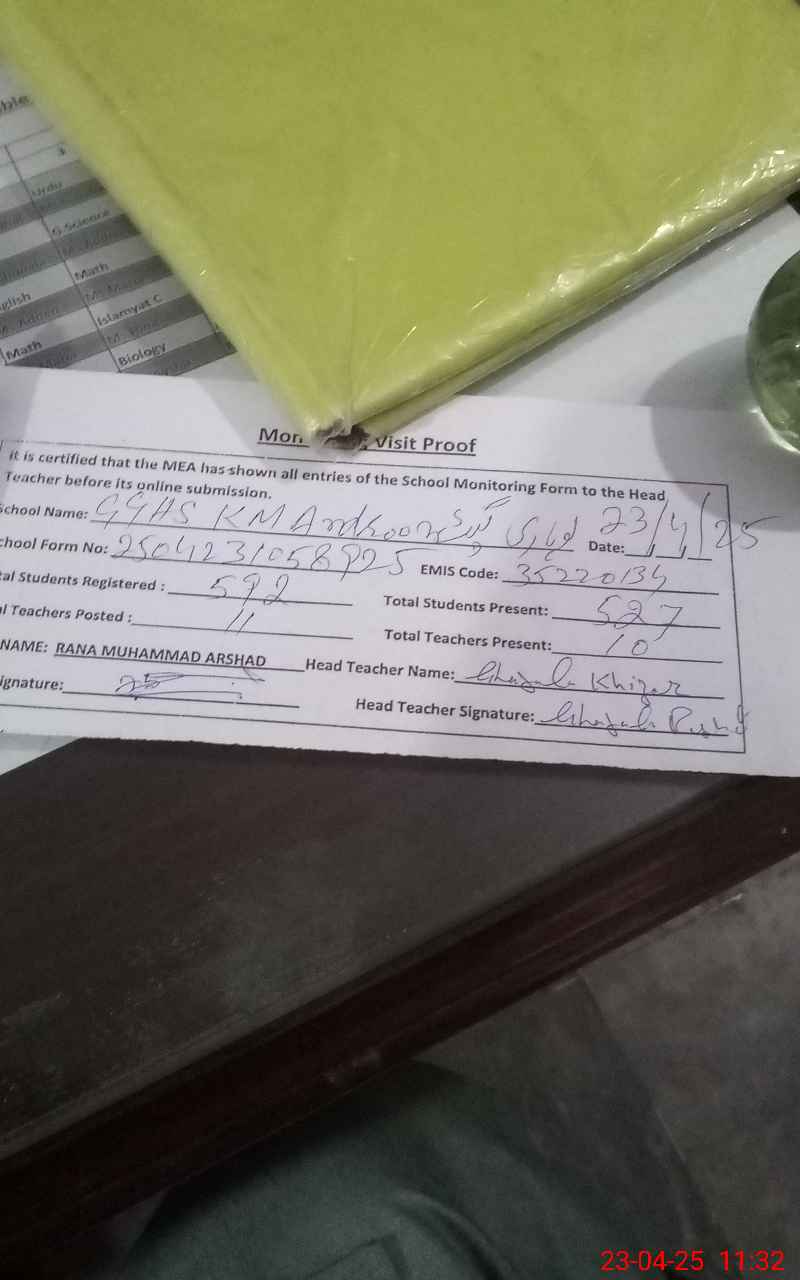 Urdu
G.Science
Math
glish
Islamyat C
Math
Biology
Mon Visit Proof
it is certified that the MEA has shown all entries of the School Monitoring Form to the Head
Teacher before its online submission.
School Name: GGHS KM Date: 23/4/25
chool Form No: EMIS Code: 35220134
tal Students Registered : 592 Total Students Present: 527
l Teachers Posted : 11 Total Teachers Present: 10
NAME: RANA MUHAMMAD ARSHAD Head Teacher Name: Khizar
ignature: Head Teacher Signature:
23-04-25 11:32